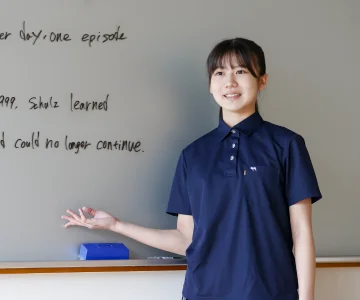 er day, one episode
999. Schulz learned
d could no longer continue.